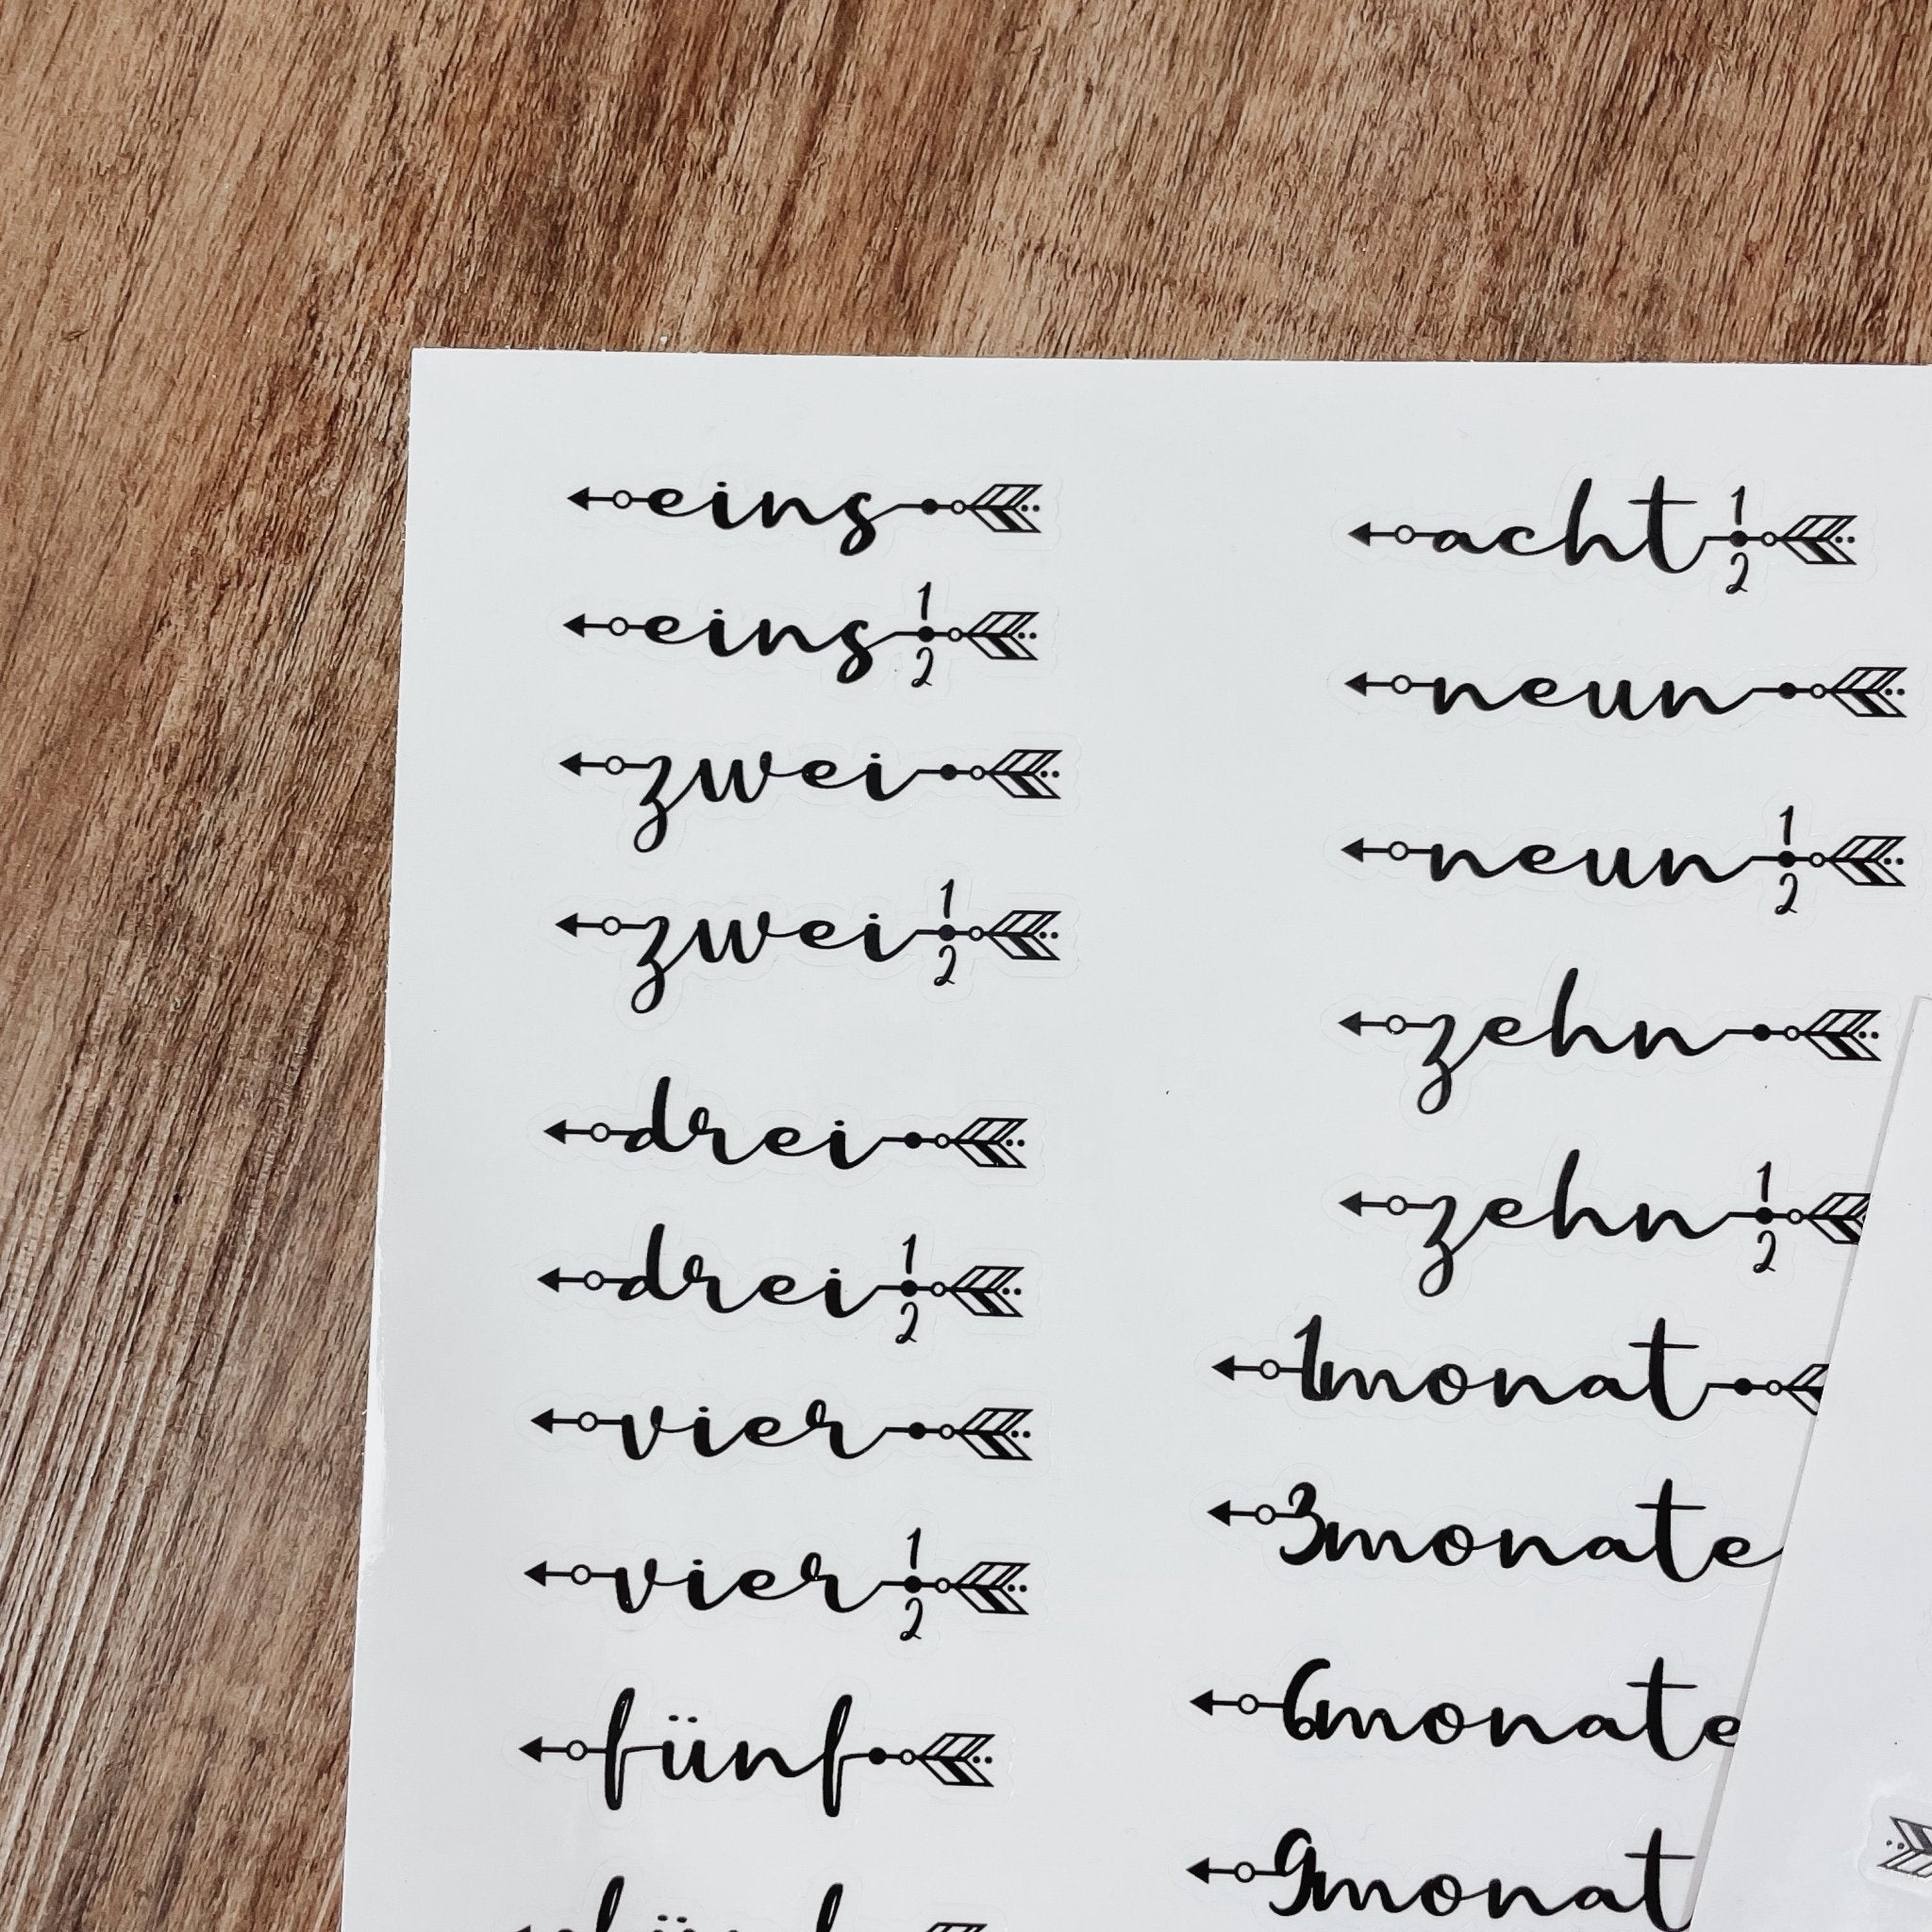 eins
eins 1/2
zwei
zwei 1/2
drei
drei 1/2
vier
vier 1/2
fünf
acht 1/2
neun
neun 1/2
zehn
zehn 1/2
1monat
3monate
6monate
9monat